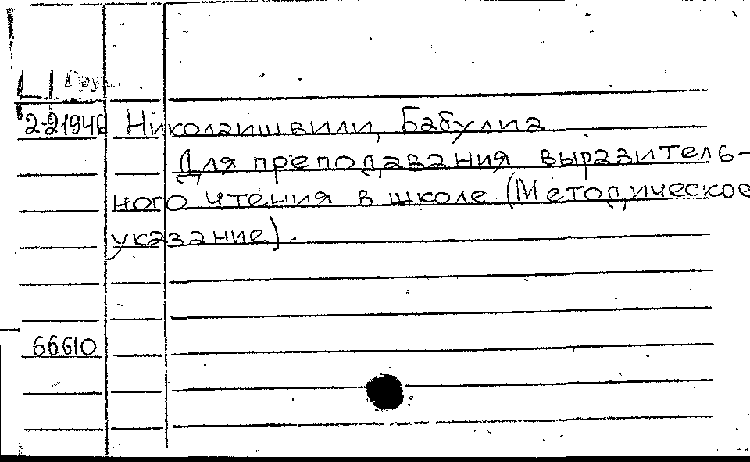 2-21946 Николаишвили, Бабулиа
Для преподавания выразитель-
ного чтения в школе (Методическое
указание).
66610